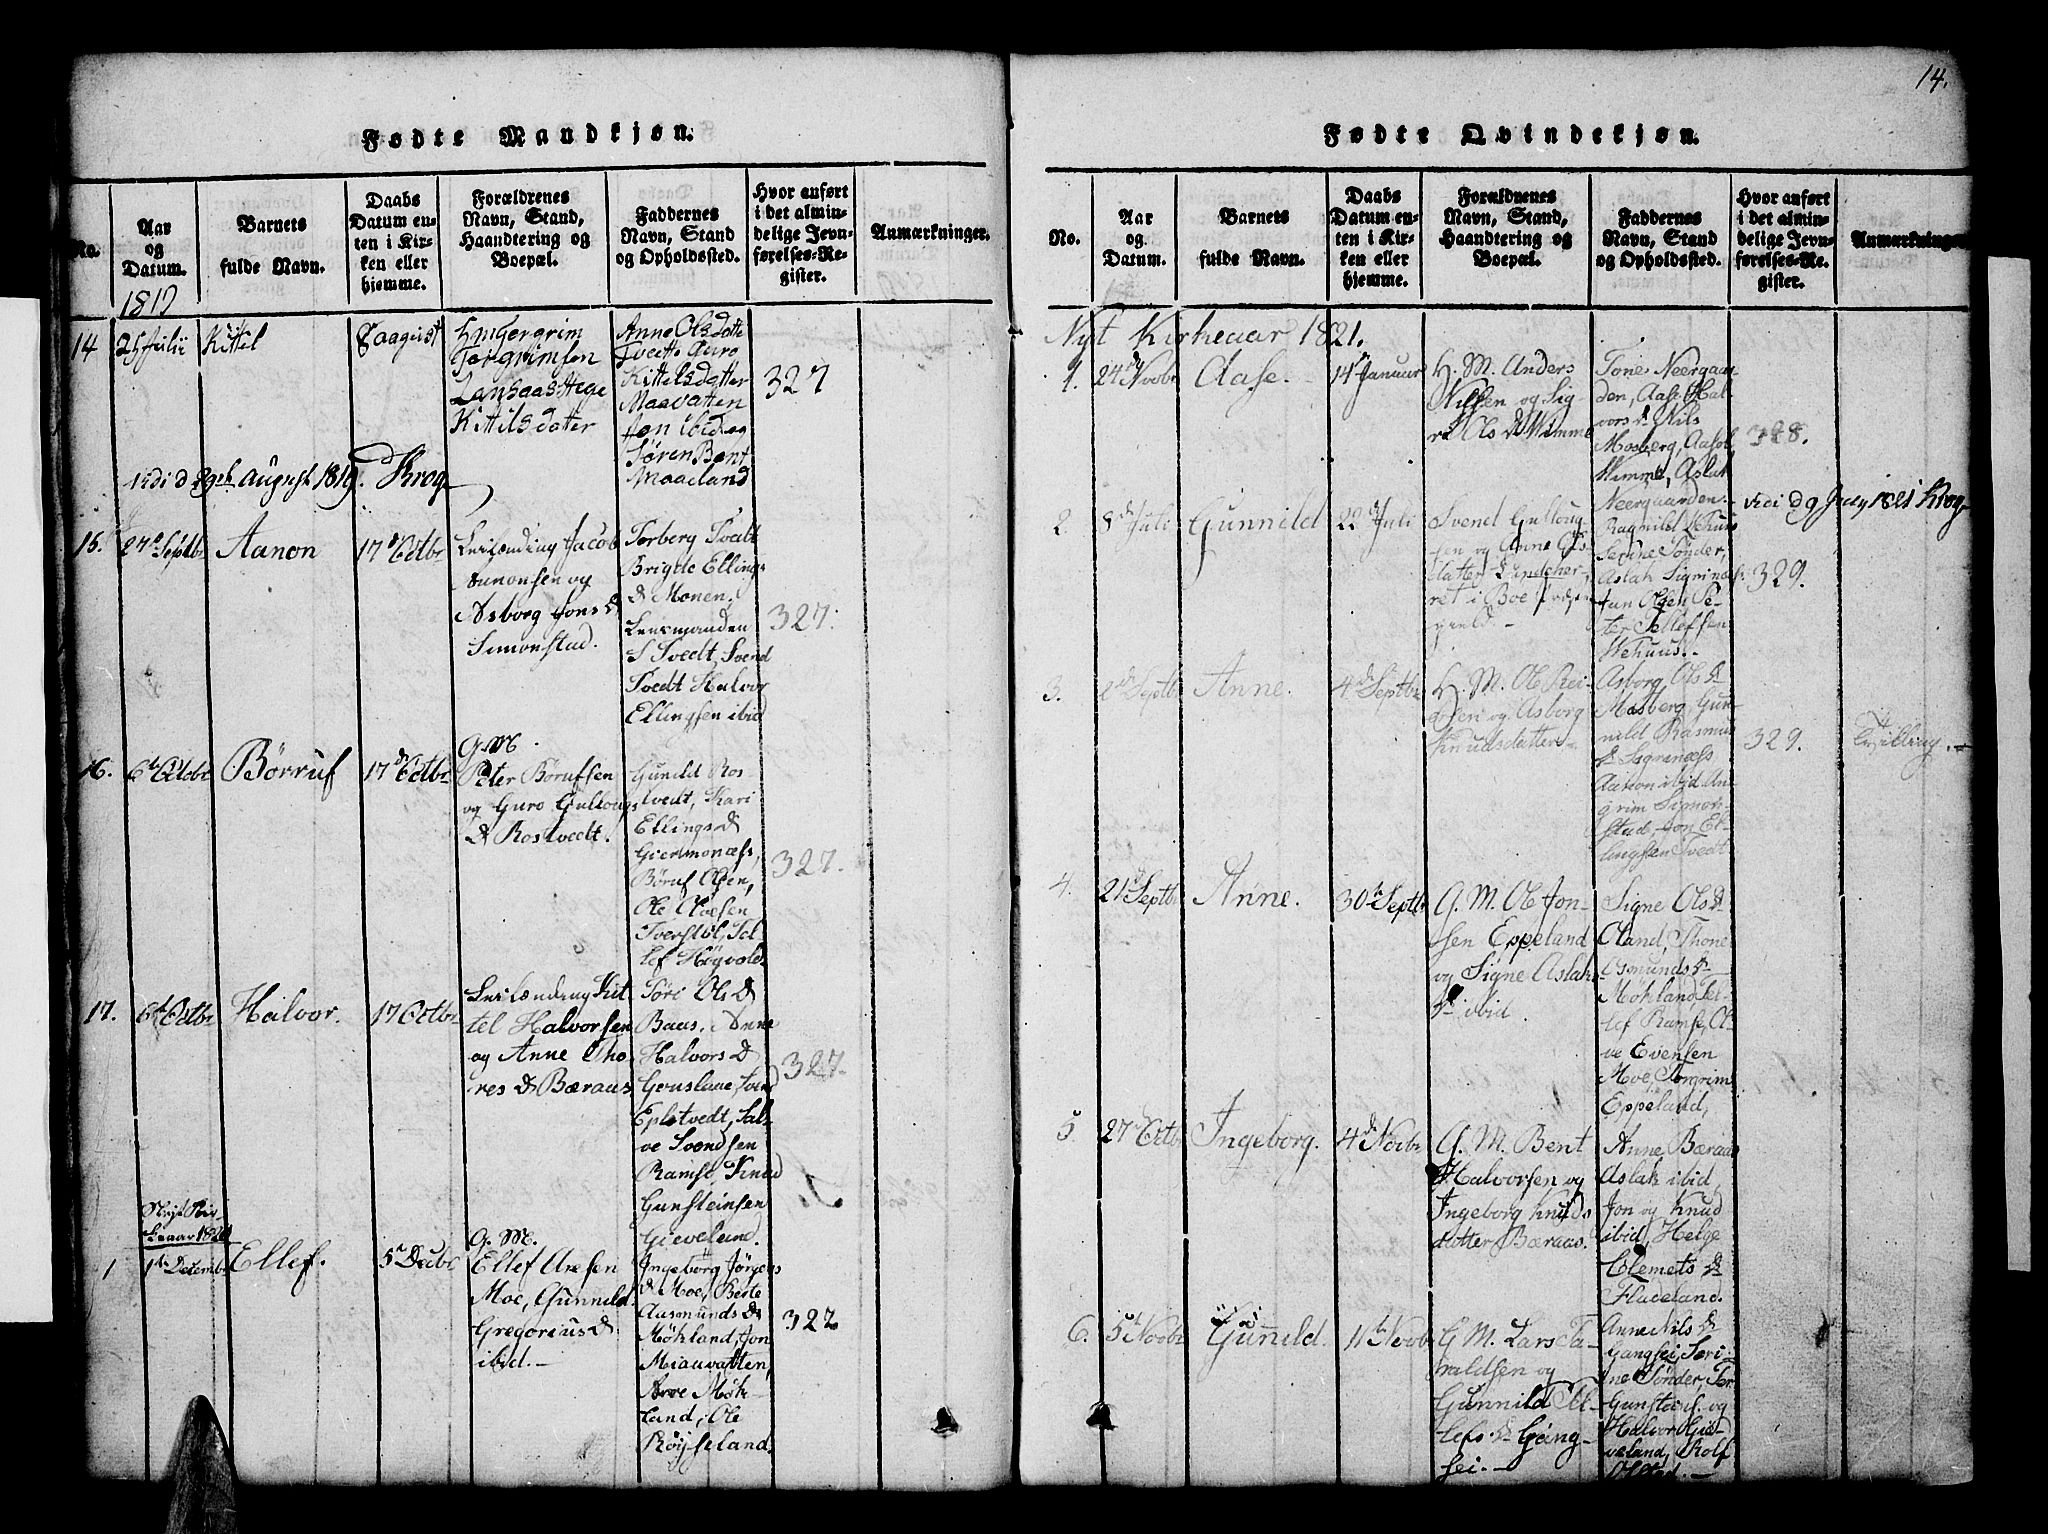 14.
Fødte Mandkjøn.
No.
Aar
og
Datum.
Barnets
fulde Navn.
Daabs
Datum en-
ten i Kir-
ken eller
hjemme.
Forældrenes
Navn, Stand,
Haandtering og
Boepæl.
Faddernes
Navn, Stand
og Opholdssted.
Hvor anført
i det almin-
delige Jevn-
førelses-Re-
gister.
Anmærkninger.
1819
14
25 Julii
Kittel
8 august
Torgrimsen
Hege
Kittilsdatter
Anne Olsdatter
Tvette Guro
Kittelsdatter
Maavatten
Jon ibid og
Søren Bent
Maaeland
327
vidi d 29de August 1819. Krog
15.
27de Septbr
Aanon
17de Octbr
Leilænding Jacob
Aanonsen og
Asborg Jons D
Simonstad.
Torberg Tvedt
Brigde Ellings
D Monen,
Lensmanden
S Tvedt, Svend
Tvedt Halvor
Ellingsen ibid
327.
16.
6te Octobr
Börruf
17de Octbr
G. M.
Peter Börufsen
og Guro Gullougs
D Rostvedt.
Gunild Ros-
tvedt, Kari
Ellings D
Giermonæss,
Böruf Olsen,
Ole Olvesen
Tverstöl, Tel-
lef Høgvold
327.
17.
6te Octbr
Halvor.
17 Octbr
Leilænding Kit-
tel Halvorsen
og Anne Tho-
res D Bæraas
Töri Ols D
Baas, Anne
Halvors D
Gouslaae, Svend
Eplstvedt, Sal-
ve Svendsen
Ramse, Knud
Gunsteinsen
Gieveland.
327.
Nyt Kir-
keaar 1820
1
1te Decemb
Ellef.
5te Decbr
G. M.
Ellef Uvesen
Moe, Gunnild
Gregorius D
ibid.
Ingeborg Jörgens
D Moe, Berte
Aasmunds D
Möhland, Jon
Miauvatten,
Arve Möh-
land, Ole
Röysseland.
327.
Fødte Qvindekjøn.
No.
Aar
og
Datum.
Barnets
fulde Navn.
Daabs
Datum en-
ten i Kir-
ken eller
hjemme.
Forældrenes
Navn, Stand,
Haandtering og
Boepæl.
Faddernes
Navn, Stand
og Opholdssted.
Hvor anført
i det almin-
delige Jevn-
førelses-Re-
gister.
Anmærkninger
Nyt Kirkeaar 1821.
1.
24de Novbr
Aase.
14de Januar
H. M. Anders
Nilsen og Sig-
ri Ols D Wimme
Tone Neergaar-
den, Aase Hal-
vors D Nils
Mosberg, Aasol
Wimme, Aslak
Neergaarden.
328.
vidi d 9 July 1821 Krog
2.
8de Juli
Gunnild
22de Juli
Svend Gulloug-
sen og Anne Ols-
datter
i Boe
gield.
Ragnild Wehuus
Serine Sönder,
Aslak Sigrinæs,
Jan Olsen Se-
ter Tellefsen
Wehuus.
329.
3.
2de Septbr
Anne.
4de Septbr
H. M. Ole Rei-
ersen og Asborg
Knudsdatter
Asborg Ols D
Mosberg, Gun-
nild Rasmus
D Sigrinæss
Aanon ibid An-
grim Simon-
stad, Jon El-
lingsen Tvedt
329.
Tvilling.
4.
21de Septbr
Anne.
30te Septbr
G. M. Ole Jon-
sen Eppeland
og Signe Aslak
D ibid.
Signe Ols D
Oland, Thone
Osmunds D
Möhland Tel-
lef Ramse, Ol-
ve Evensen
Moe, Torgrim
Eppeland,
5.
27de Octbr
Ingeborg.
4de Novbr
G. M. Bent
Halvorsen og
Ingeborg Knuds
datter Bæraas.
Anne Bæraas
Aslak ibid,
Jon og Knud
ibid, Helge
Clemets D
Fladeland.
6.
5te Novbr
Gunild.
11te Novbr
G. M. Lars Ta-
raldsen og
Gunnild Tel-
lefs D Gang-
sei.
Anne Nils D
Gangsei, Seri-
ne Sönder, Ter
Gunsteins. og
Halvor Gie-
veland, Rolf
Olstad.